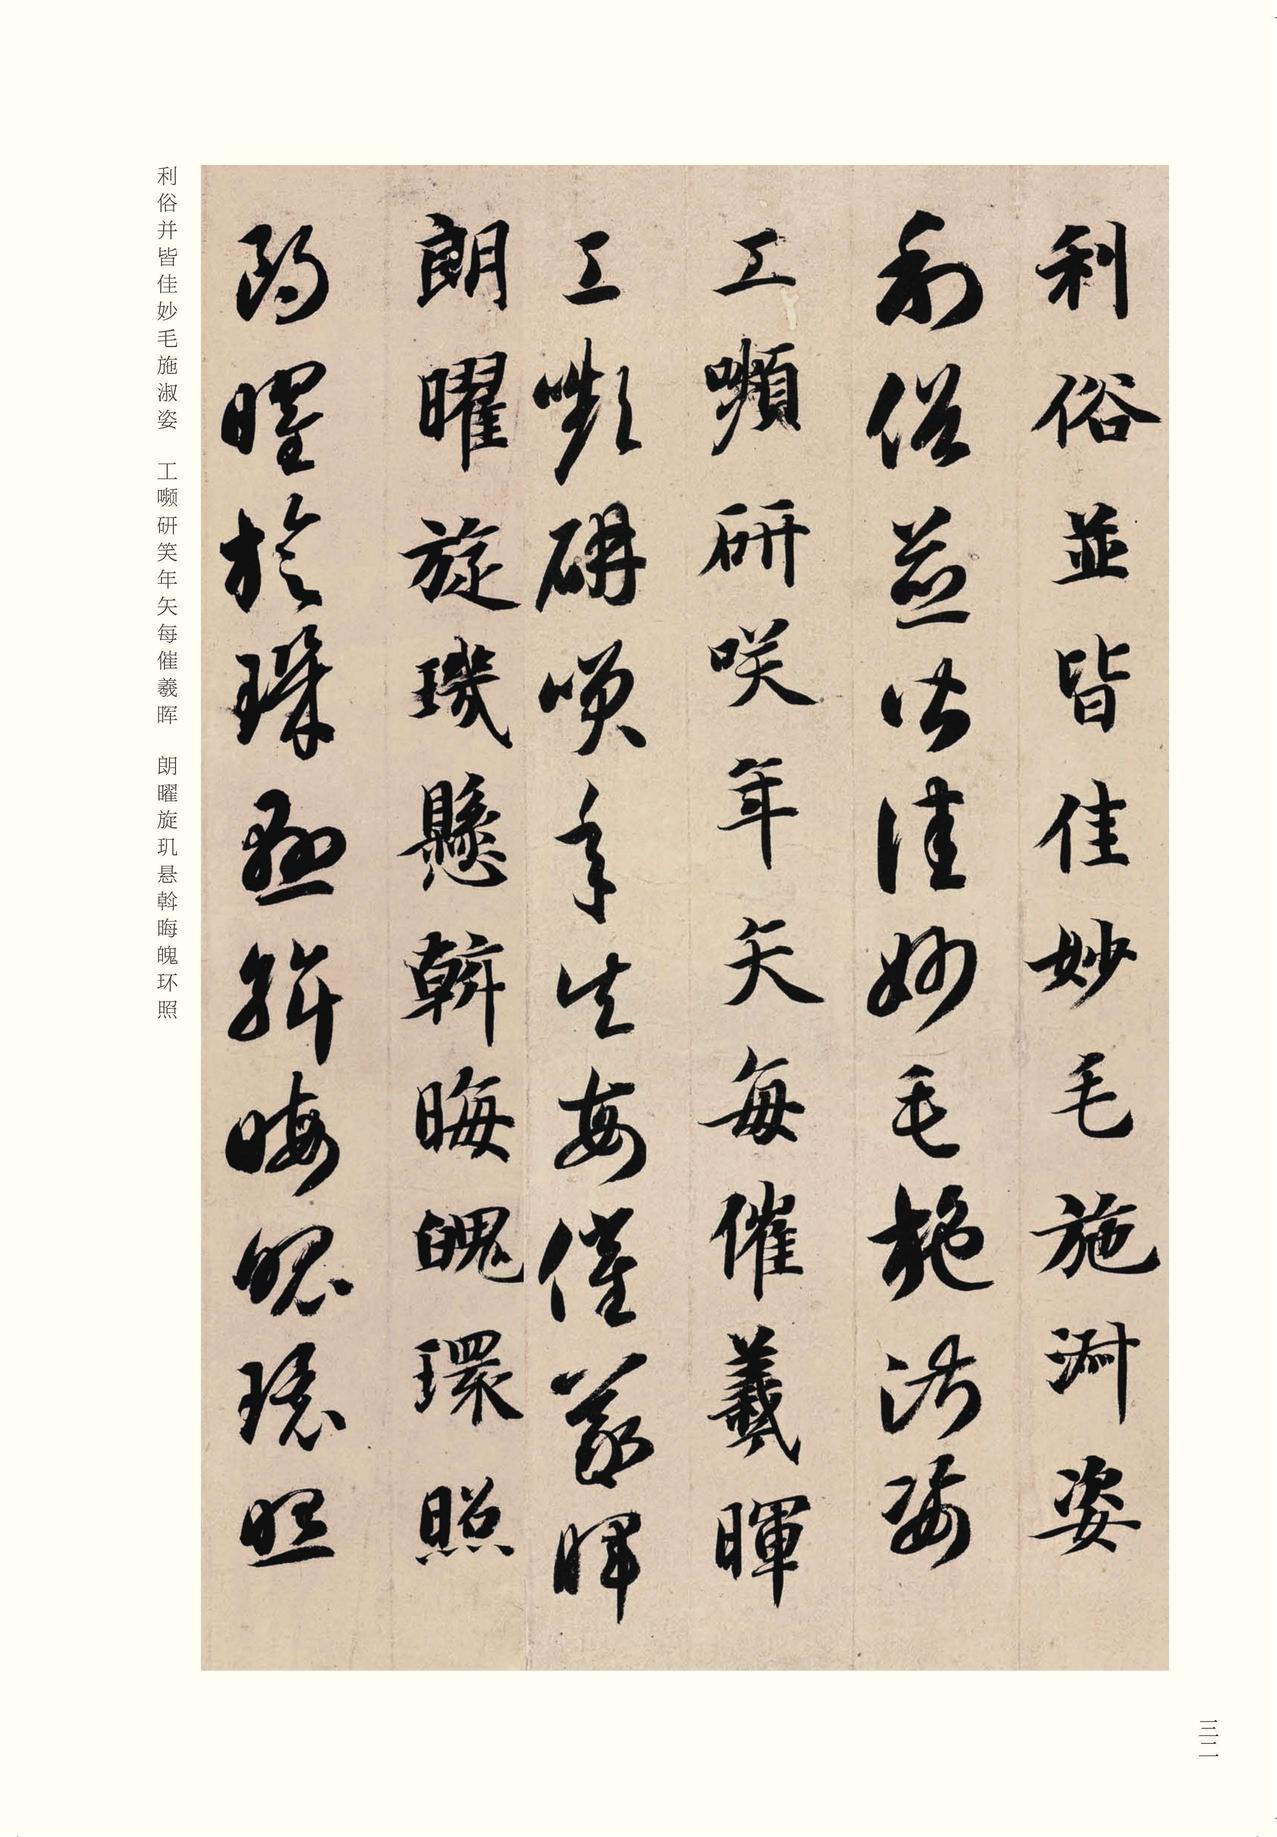 利俗並皆佳妙毛施淑姿
利俗並皆佳妙毛施淑姿
工嚬研咲年矢每催羲暉
工嚬研唉年矢每催羲暉
朗曜旋璣懸斡晦魄環照
朗曜旋璣懸斡晦魄環照
利俗并皆佳妙毛施淑姿 工嚬研笑年矢每催羲晖 朗曜旋玑悬斡晦魄环照
三二